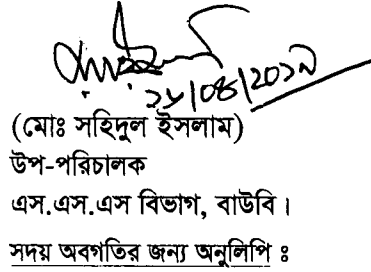 (মোঃ সহিদুল ইসলাম)
উপ-পরিচালক
এস.এস.এস বিভাগ, বাউবি।
সদয় অবগতির জন্য অনুলিপি ঃ